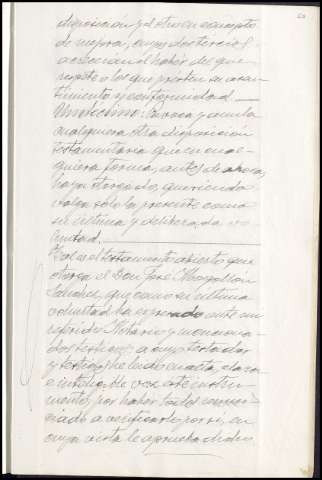 disposición y el otro en concepto
de mejora, cuyos dos tercios
acrecerán el haber del que
respete o los que presten su asen-
timiento y conformidad.
Undécimo: Revoca y anula
cualquiera otra disposición
testamentaria que en cual-
quiera forma, antes de ahora,
haya otorgado, queriendo
valga solo la presente como
su última y deliberada vo-
luntad.
Tal es el testamento abierto que
otorga el Don José Mogollón
Sánchez, que como su última
voluntad ha expresado ante mi
referido Notario y mencionados
dos testigos, a cuyo testador
y testigos he leido en alta, clara
e inteligible voz este instru-
mento, por haber todos renun-
ciado a verificarlo por sí, en
cuya vista le aprueba